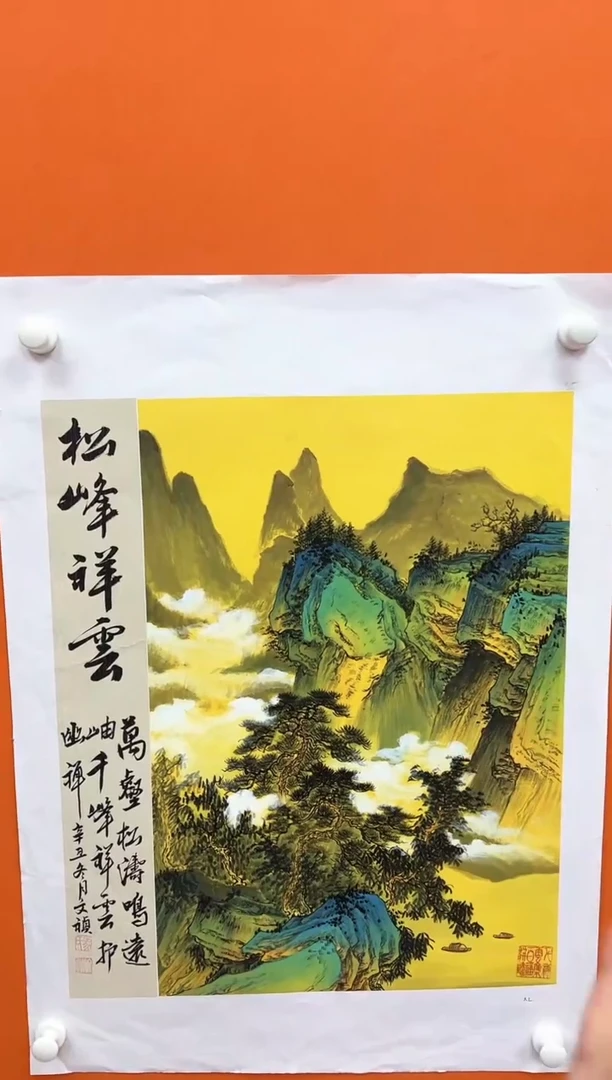 松峰祥雲
萬壑松濤鳴遠
岫千峰祥雲护
幽禅 辛丑冬月文禎